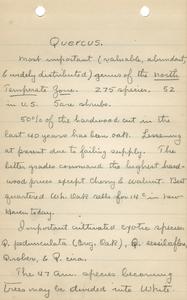 Quercus.
most important (valuable, abundant,
& widely distributed) genus of the north
Temperate Zone. 275 species. 52
in U.S. 5 are shrubs.
50% of the hardwood cut in the
last 40 years has been oak. Lessening
at present due to failing supply. The
better grades command the highest hard-
wood prices except Cherry & Walnut. Best
quartered Wh. Oak sells for 14¢ in new
Haven today.
Important cultivated exotic species
Q. pedunculata (Eng. Oak), Q. sessiliflora,
& Q.
The 47 Am. species becoming
trees may be divided into White